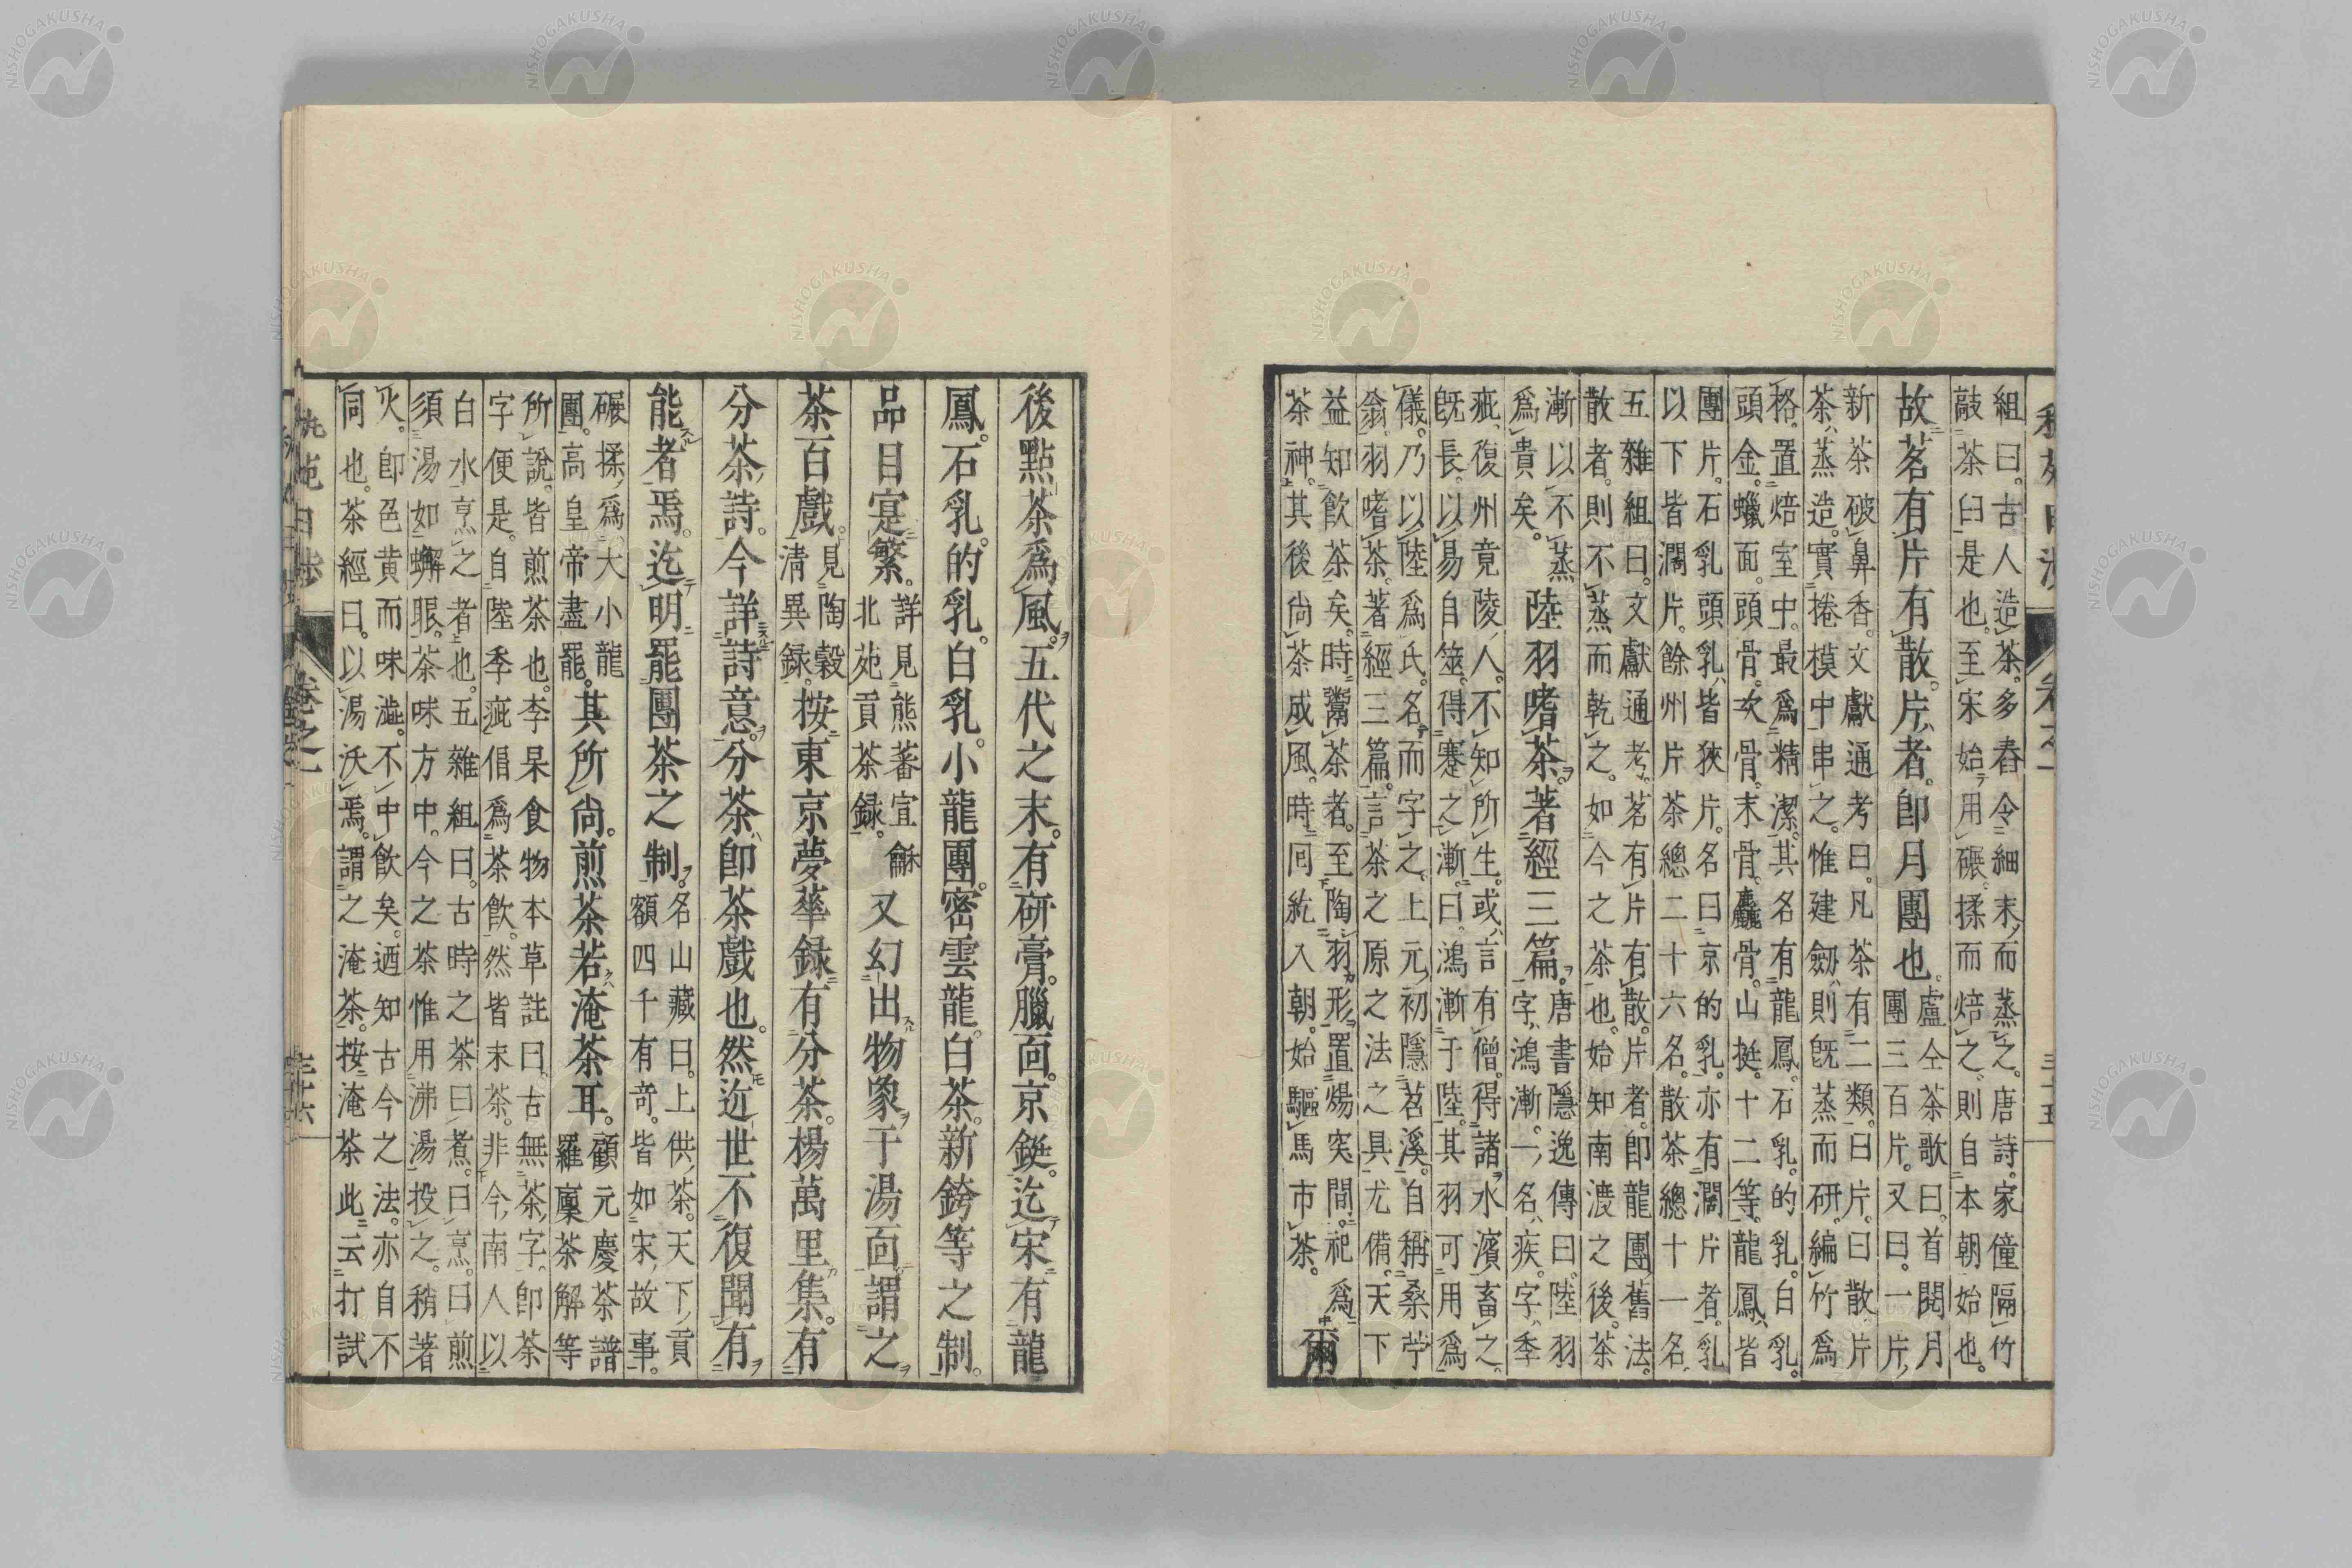 組曰古人造茶多舂令細末而蒸之唐詩家僮隔竹
敲茶臼是也至宋始用碾揉而焙之則自本朝始也
故茗有片有散片者即月團也
盧仝茶歌曰首閲月
團三百片又曰一片
新茶破鼻香文獻通考曰凡茶有二類曰片曰散片
茶蒸造實捲模中串之惟建劒則既蒸而研編竹爲
格置焙室中最爲精潔其名有龍鳳石乳的乳白乳
頭金蠟面頭骨次骨末骨麤骨山挺十二等龍鳳皆
團片石乳頭乳皆狹片名曰京的乳亦有濶片者乳
以下皆濶片餘州片茶總二十六名散茶總十一名
五雜組曰文獻通考茗有片有散片者即龍團舊法
散者則不蒸而乾之如今之茶也始知南渡之後茶
漸以不蒸
爲貴矣
陸羽嗜茶著經三篇
唐書隱逸傳曰陸羽
字鴻漸一名疾字季
疵復州竟陵人不知所生或言有僧得諸水濱畜之
既長以易自筮得蹇之漸曰鴻漸于陸其羽可用爲
儀乃以陸爲氏名而字之上元初隱苕溪自稱桑苧
翁羽嗜茶著經三篇言茶之原之法之具尤備天下
益知飲茶矣時鬻茶者至陶羽形置煬突間祀爲
茶神其後尚茶成風時囘紇入朝始驅馬市茶
爾
後點茶爲風五代之末有研膏臘面京鋌迄宋有龍
鳳石乳的乳白乳小龍團密雲龍白茶新銙等之制
品目寔繁
詳見熊蕃宣龢
北苑貢茶録
又幻出物象于湯面謂之
茶百戲
見陶穀
清異録
按東京夢華録有分茶楊萬里集有
分茶詩今詳詩意分茶即茶戲也然近世不復聞有
能者焉迄明罷團茶之制
名山藏曰上供茶天下貢
額四千有奇皆如宋故事
碾揉爲大小龍
團高皇帝盡罷
其所尚煎茶若淹茶耳
顧元慶茶譜
羅廩茶解等
所説皆煎茶也李杲食物本草註曰古無茶字即茶
字便是自陸季疵倡爲茶飲然皆末茶非今南人以
白水烹之者也五雜組曰古時之茶曰煮曰烹曰煎
須湯如蠏眼茶味方中今之茶惟用沸湯投之稍著
火即色黄而味澁不中飲矣迺知古今之法亦自不
同也茶經曰以湯沃焉謂之淹茶按淹茶此云打試
苑日渉
卷之一
三十六